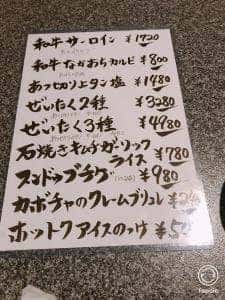 和牛サーロイン ¥1920
和牛なかおちカルビ ¥800
あつ切り上タン塩 ¥1480
ぜいたく2種 ¥3280
ぜいたく3種 ¥4980
石焼きキムチガーリック
ライス ¥780
スンドゥブチゲ ¥980
カボチャのクレームブリュレ
ホットクアイスのっけ